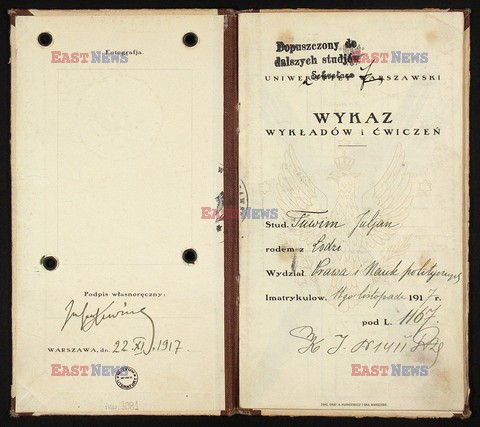 Fotografja.
EAST NEWS
EAST NEWS
EAST NEWS
Podpis własnoręczny:
WARSZAWA, dn. 22 XI, 1917
EAST NEWS
inw. 3081
Dopuszczony do
dalszych studiów
Sekretarz
EAST NEWS
UNIWERSYTET WARSZAWSKI
WYKAZ
WYKŁADÓW i ĆWICZEŃ
Stud. Tuwim Juljan
rodem z Łodzi
Wydział Prawa i Nauk politycznych
Imatrykulow. 11go listopada 1917 r.
pod L. 1167.
EAST NEWS